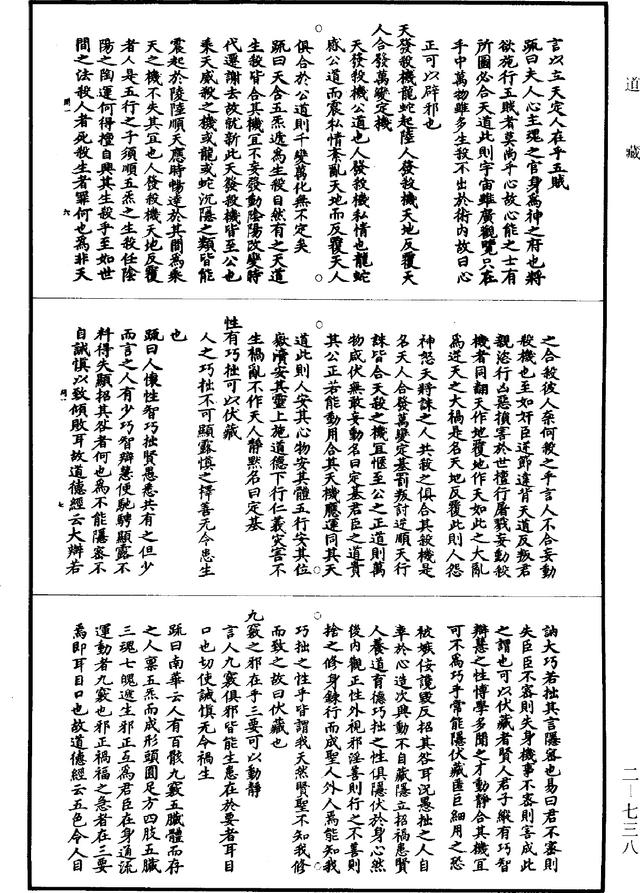 道藏
言以立天定人在乎五賊
疏曰夫人心主魂之官身為神之府也將
欲施行五賊者莫尚乎心故心能之士有
所圖必合天道此則宇宙雖廣觀覽只在
手中萬物雖多生殺不出於術內故曰心
正可以辟邪也
天發殺機龍蛇起陸人發殺機天地反覆天
人合發萬變定機
天發殺機公道也人發殺機私情也龍蛇
感公道而震私情紊亂天地而反覆天人
俱合於公道則千變萬化無不定矣
疏曰天含五炁遞為生殺自然有之天道
生殺皆合其機宜不妄發動陰陽改變時
代遷謝去故就新此天發殺機皆至公也
乘天威殺之機或龍或蛇沉隱之類皆能
震起於陵陸順天應時暢達於其間為乘
天之機不失其宜也人發殺機天地反覆
者人是五行之子須順五炁之生殺任陰
陽之陶運何得擅自興其生殺乎至如世
間之法殺人者死殺生者罪何也為非天
閏一 六
之合殺彼人柰何殺之乎言人不合妄動
殺機也至如奸臣逆節違背天道反叛君
親恣行凶惡損害於世擅行屠戮妄動殺
機者同翻天作地覆地作天如此之大亂
為逆天之大禍是名天地反覆此則人怨
神怒天將誅之人共殺之俱合其殺機是
名天人合發萬變定基罰叛討逆順天行
誅皆合天殺之機宜愜至公之正道則萬
物咸伏無敢妄動名曰定基君臣之道貴
其公正若能動用合其天機應運同其天
道此則人安其心物安其體五行安其位
嶽瀆安其靈上施道德下行仁義災害不
生禍亂不作天人靜默名曰定基
性有巧拙可以伏藏
人之巧拙不可顯露慎之擇善无令患生
也
疏曰人懷性智巧拙賢愚悉共有之但少
而言之人有少巧智辯慧便馳騁顯露不
料得失顯招其咎者何也為不能隱密不
自誡慎以致傾敗耳故道德經云大辯若
閏一 七
訥大巧若拙其言隱密也易曰君不密則
失臣臣不密則失身機事不密則害成此
之謂也可以伏藏者賢人君子縱有巧智
辯慧之性博學多聞之才動靜合其機宜
可不為巧乎常能隱伏藏匿巨細用之恐
被嫉佞譏毀反招其咎耳況愚拙之人自
率於心造次興動不自藏隱立招禍患賢
人養道育德巧拙之性俱隱伏於身心然
後內觀正性外視邪淫善則行之不善則
捨之修身鍊行而成聖人外人焉能知我
巧拙之性乎皆謂我天然賢聖不知我修
而致之故曰伏藏也
九竅之邪在乎三要可以動靜
言人九竅俱邪皆能生患在於要者耳目
口也切使誡慎无令禍生
疏曰南華云人有百骸九竅五臟體而存
之人禀五炁而成形頭圓足方四肢五臟
三魂七魄遞生邪正互為君臣在身通流
運動者九竅也邪正禍福之急者在三要
焉即耳目口也故道德經云五色令人目
二—七三八